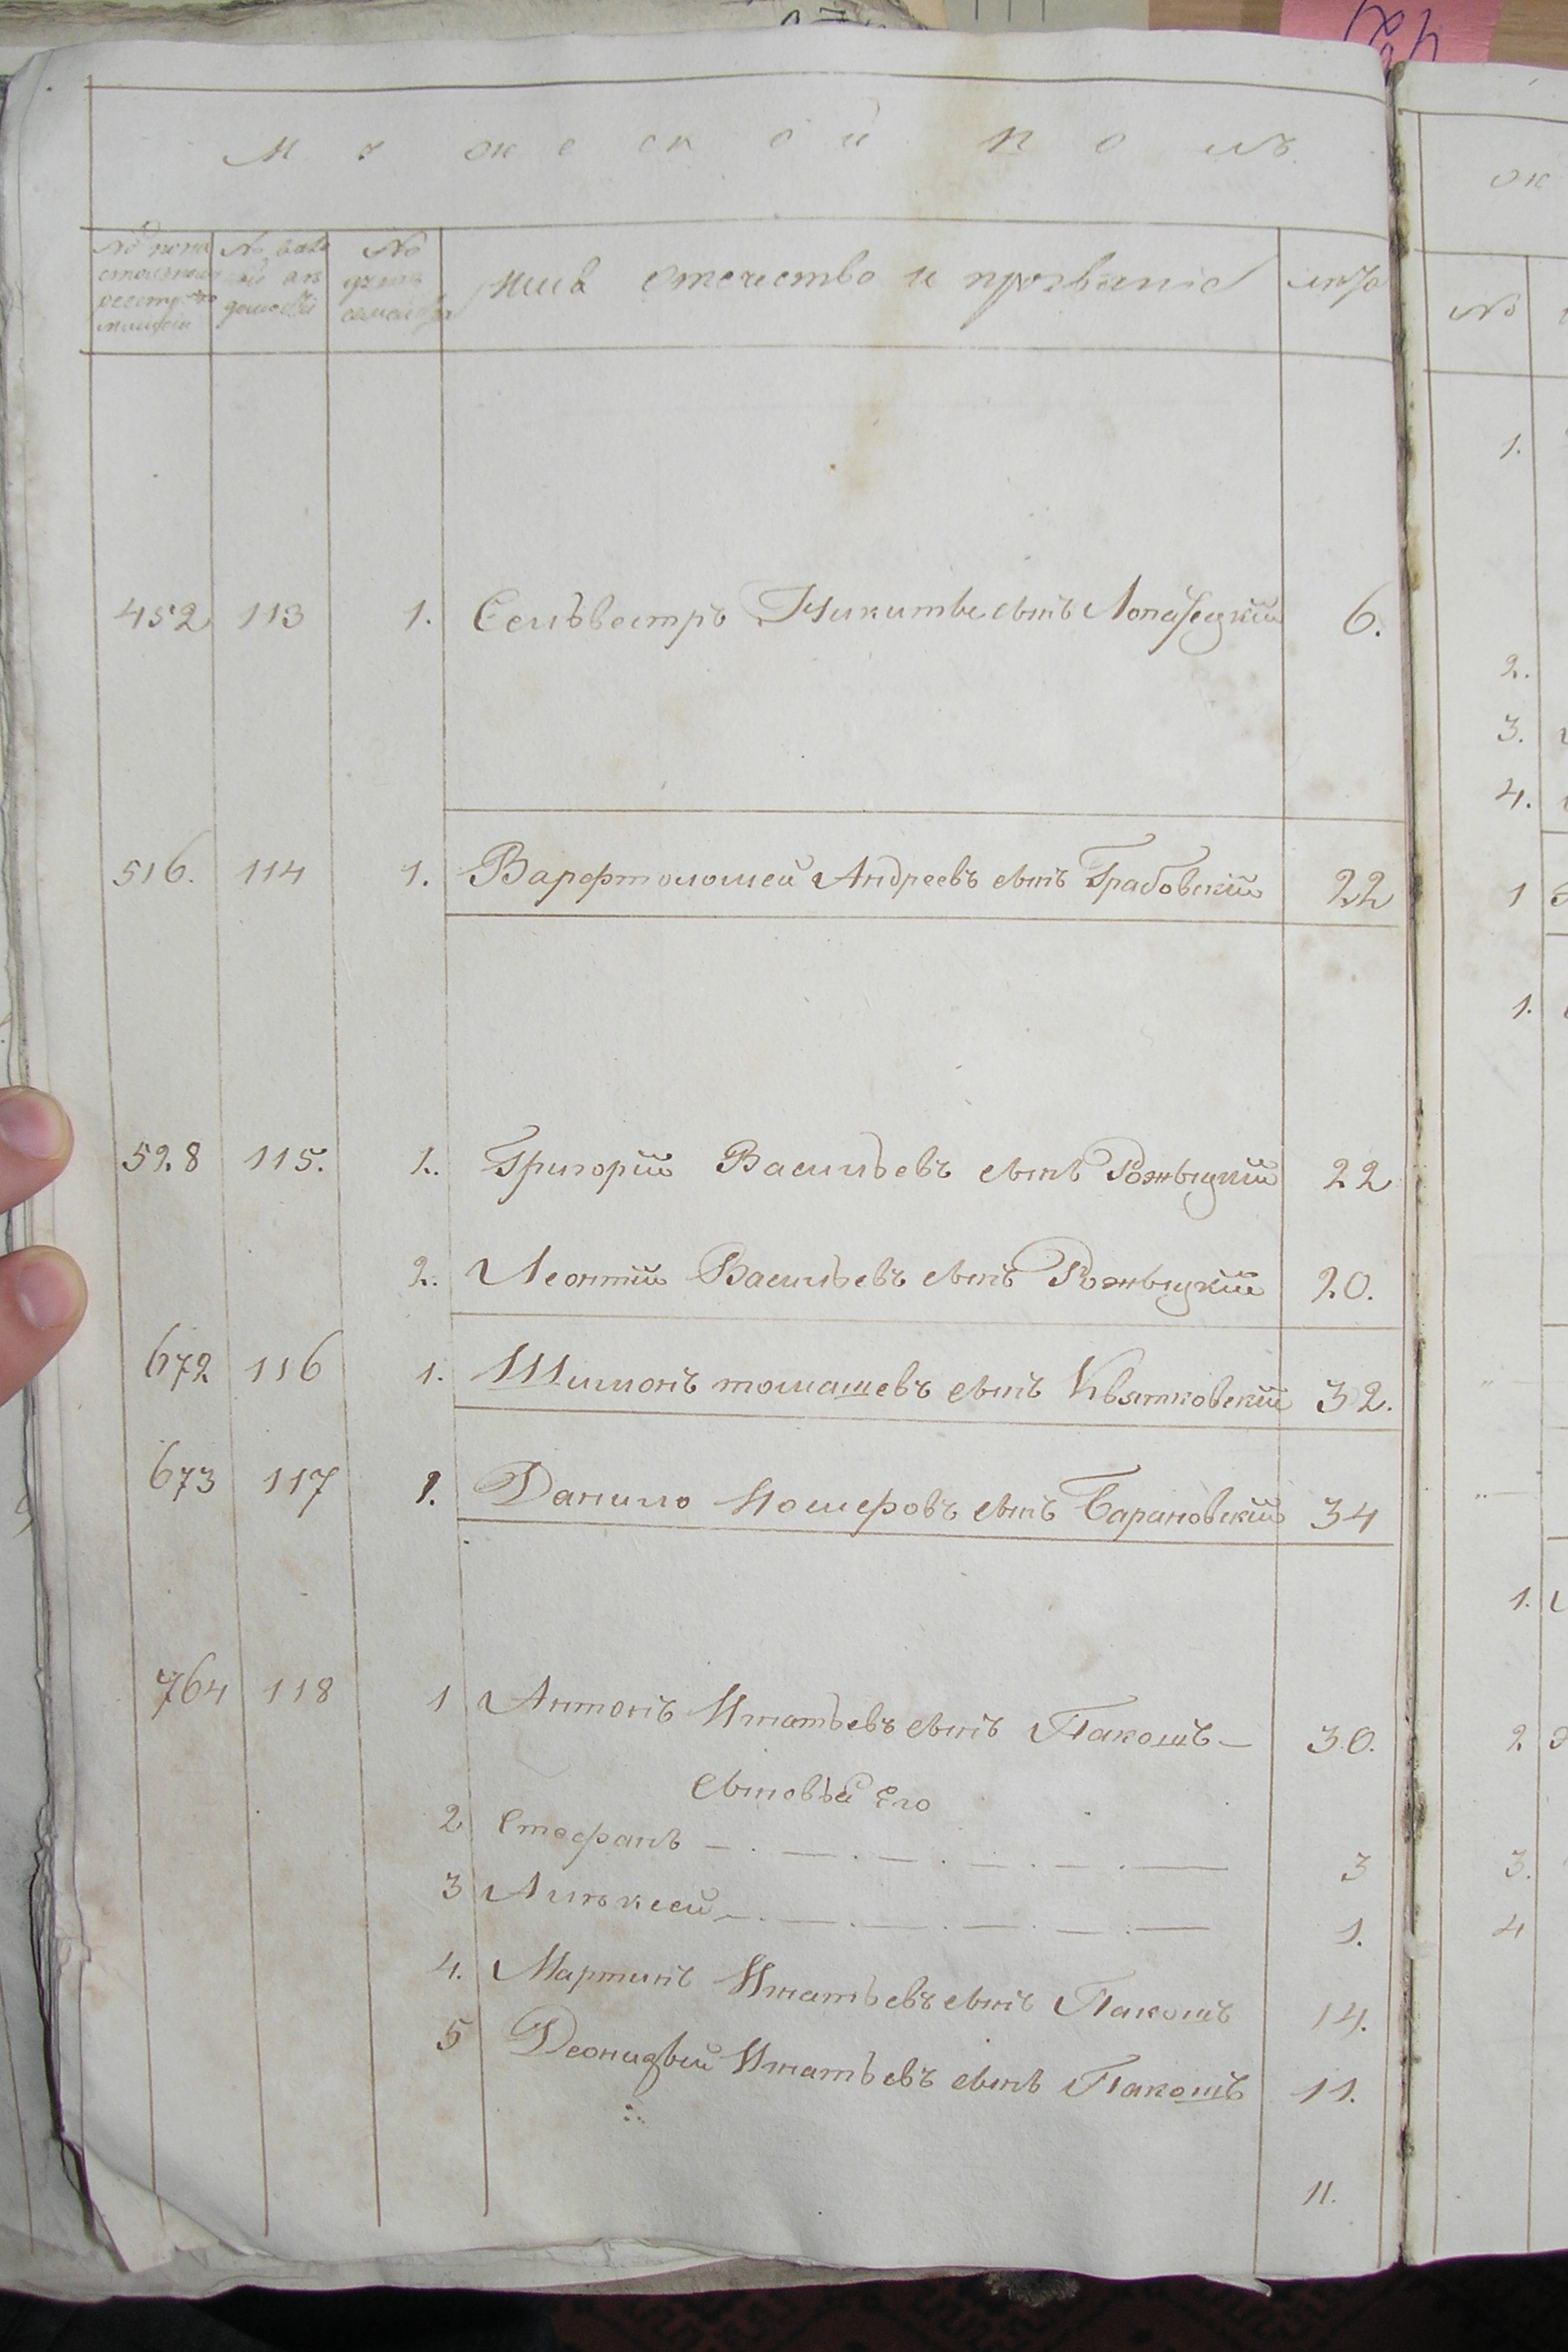 Мужеской полъ
№
№
№
Имя отечество и прозваніе
лѣта
452 113 1. Сельвестръ Никитьевъ сынъ 6.
516. 114 1. Варфтоломей Андреевъ сынъ Грабовскій 22
528 115. 1. Григорій Васильевъ сынъ Рожыцкий 22
2. Леонтій Васильевъ сынъ Рожыцкій 20.
672 116 1. Шимонъ томашевъ сынъ Квятковскій 32.
673 117 1. Данило сынъ Барановскій 34
764 118 1 Антонъ Игнатьевъ сынъ Пакошъ 30.
Сыновья Его
2 Стефанъ 3
3 Алѣксей 1.
4. Мартинъ Игнатьевъ сынъ Пакошъ 14.
5 Игнатьевъ сынъ Пакошъ 11.
11.
№
1.
2.
3.
4.
1
1.
1.
2
3.
4